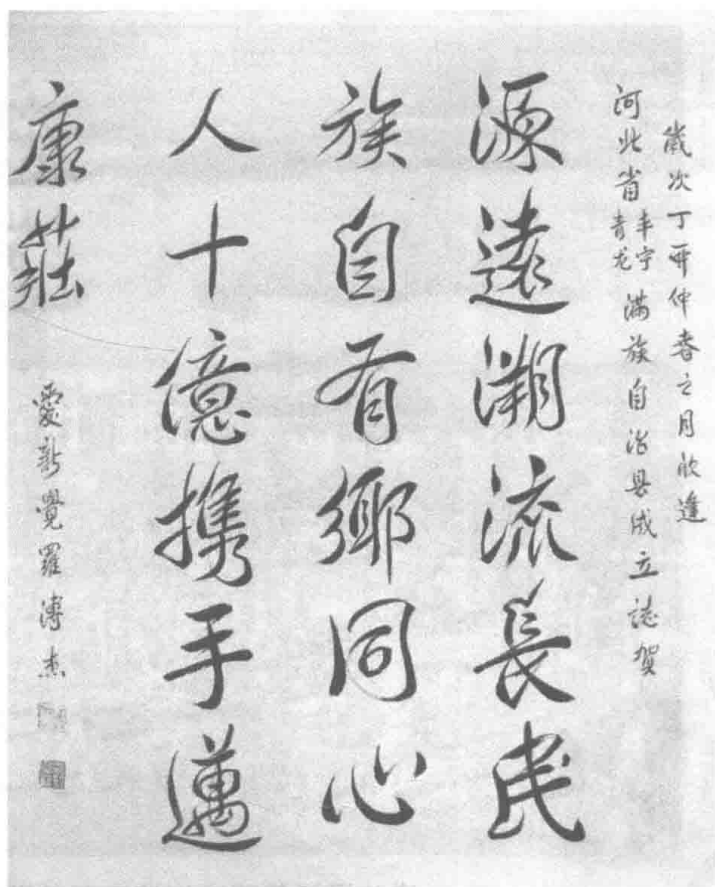 歲次丁卯仲春之月欣逢
河北省丰宁青龙满族自治县成立誌贺
源遠溯流長民
族自有鄉同心
人十億携手邁
康莊
愛新覺羅溥杰